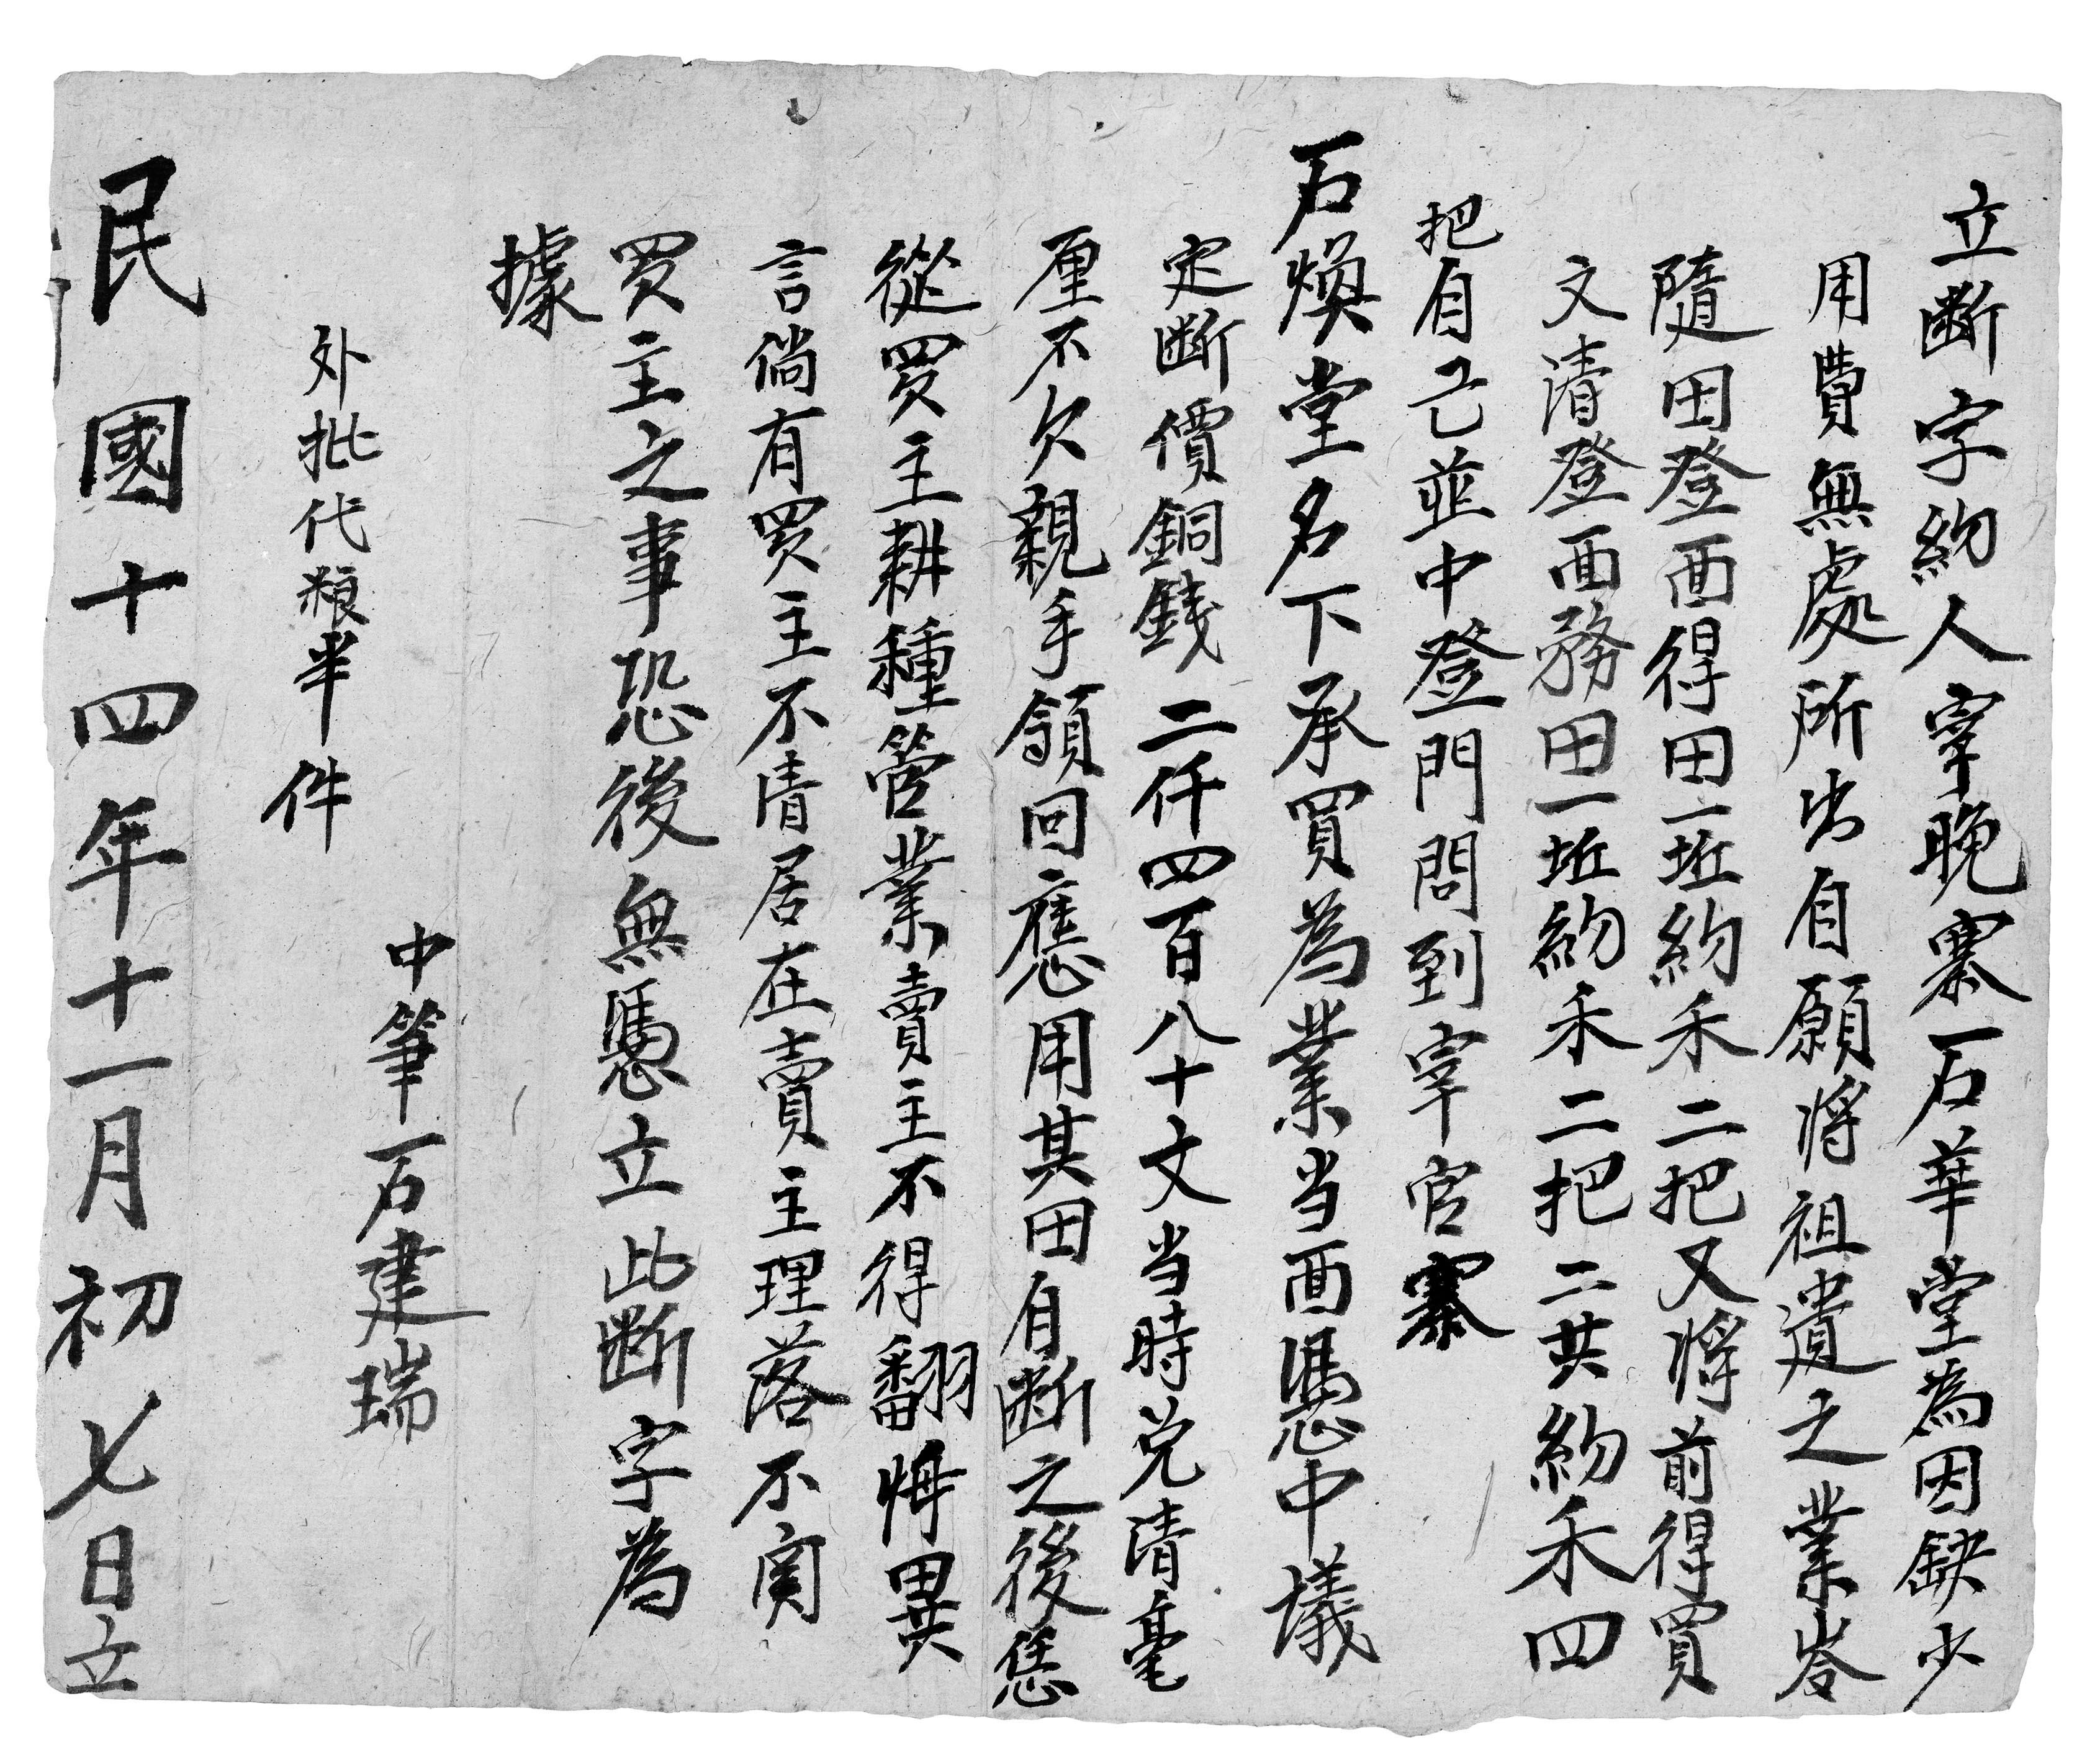 立斷字約人宰晚寨石華堂為因缺少
用費無處所出自願將祖遺之業岺
隨田登面得田一坵約禾二把又將前得買
文清登面務田一坵約禾二把二共約禾四
把自己並中登門問到宰官寨
石煥堂名下承買為業当面憑中議
定斷價銅錢二仟四百八十文当時兑清毫
厘不欠親手領回應用其田自断之後恁
從買主耕種管業賣主不得翻悔異
言倘有買主不清居在賣主理落不関
買主之事恐後無憑立此断字為
據
中筆石建瑞
外批代粮半件
民國十四年十一月初七日立